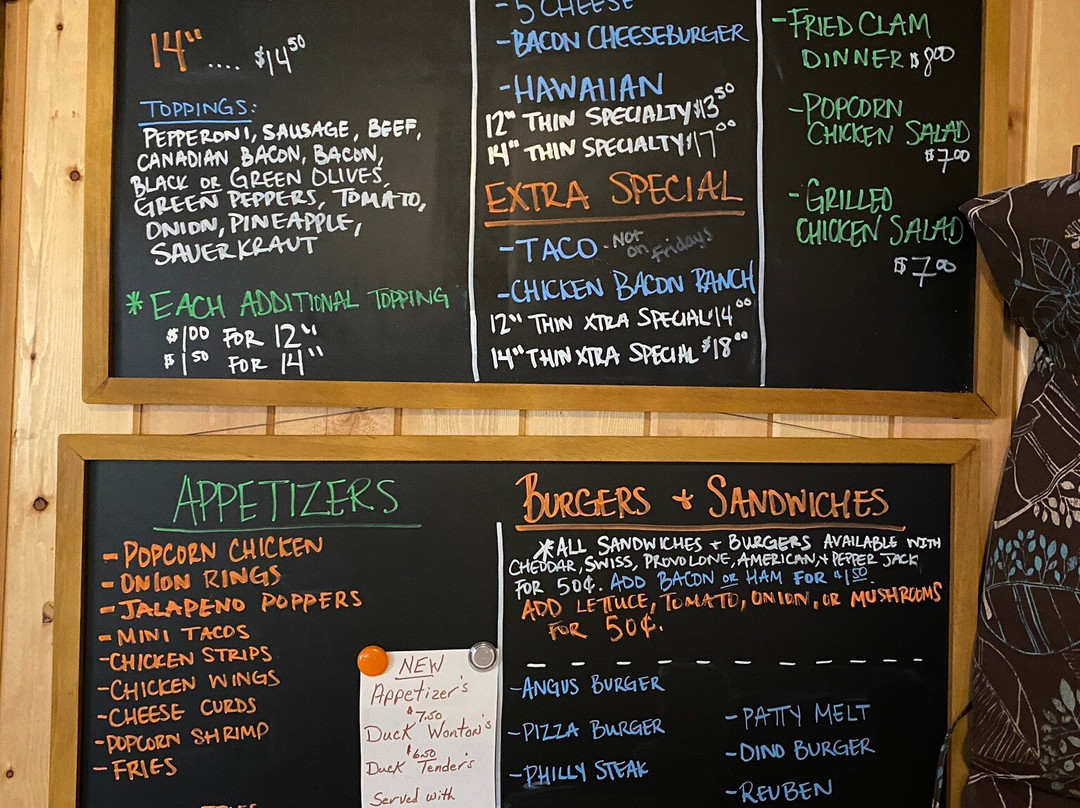 14".... $14 50
TOPPINGS:
PEPPERONI, SAUSAGE, BEEF,
CANADIAN BACON, BACON,
BLACK OR GREEN OLIVES,
GREEN PEPPERS, TOMATO,
ONION, PINEAPPLE,
SAUERKRAUT
* EACH ADDITIONAL TOPPING
$1 00 FOR 12"
$1 50 FOR 14"
- 5 CHEESE
- BACON CHEESEBURGER
- HAWAIIAN
12" THIN SPECIALTY $13 50
14" THIN SPECIALTY $17 00
EXTRA SPECIAL
- TACO - Not on Fridays
- CHICKEN BACON RANCH
12" THIN XTRA SPECIAL $14 00
14" THIN XTRA SPECIAL $18 00
- FRIED CLAM
DINNER $8 00
- POPCORN
CHICKEN SALAD
$7.00
- GRILLED
CHICKEN SALAD
$7.00
APPETIZERS
- POPCORN CHICKEN
- ONION RINGS
- JALAPENO POPPERS
- MINI TACOS
- CHICKEN STRIPS
- CHICKEN WINGS
- CHEESE CURDS
- POPCORN SHRIMP
- FRIES
NEW
Appetizer's
$7.50
Duck Wonton's
$6.50
Duck Tender's
Served with
BURGERS + SANDWICHES
*ALL SANDWICHES + BURGERS AVAILABLE WITH
CHEDDAR, SWISS, PROVOLONE, AMERICAN, + PEPPER JACK
FOR 50¢. ADD BACON OR HAM FOR $1.50.
ADD LETTUCE, TOMATO, ONION, OR MUSHROOMS
FOR 50¢.
- ANGUS BURGER
- PIZZA BURGER
- PHILLY STEAK
- PATTY MELT
- DINO BURGER
- REUBEN